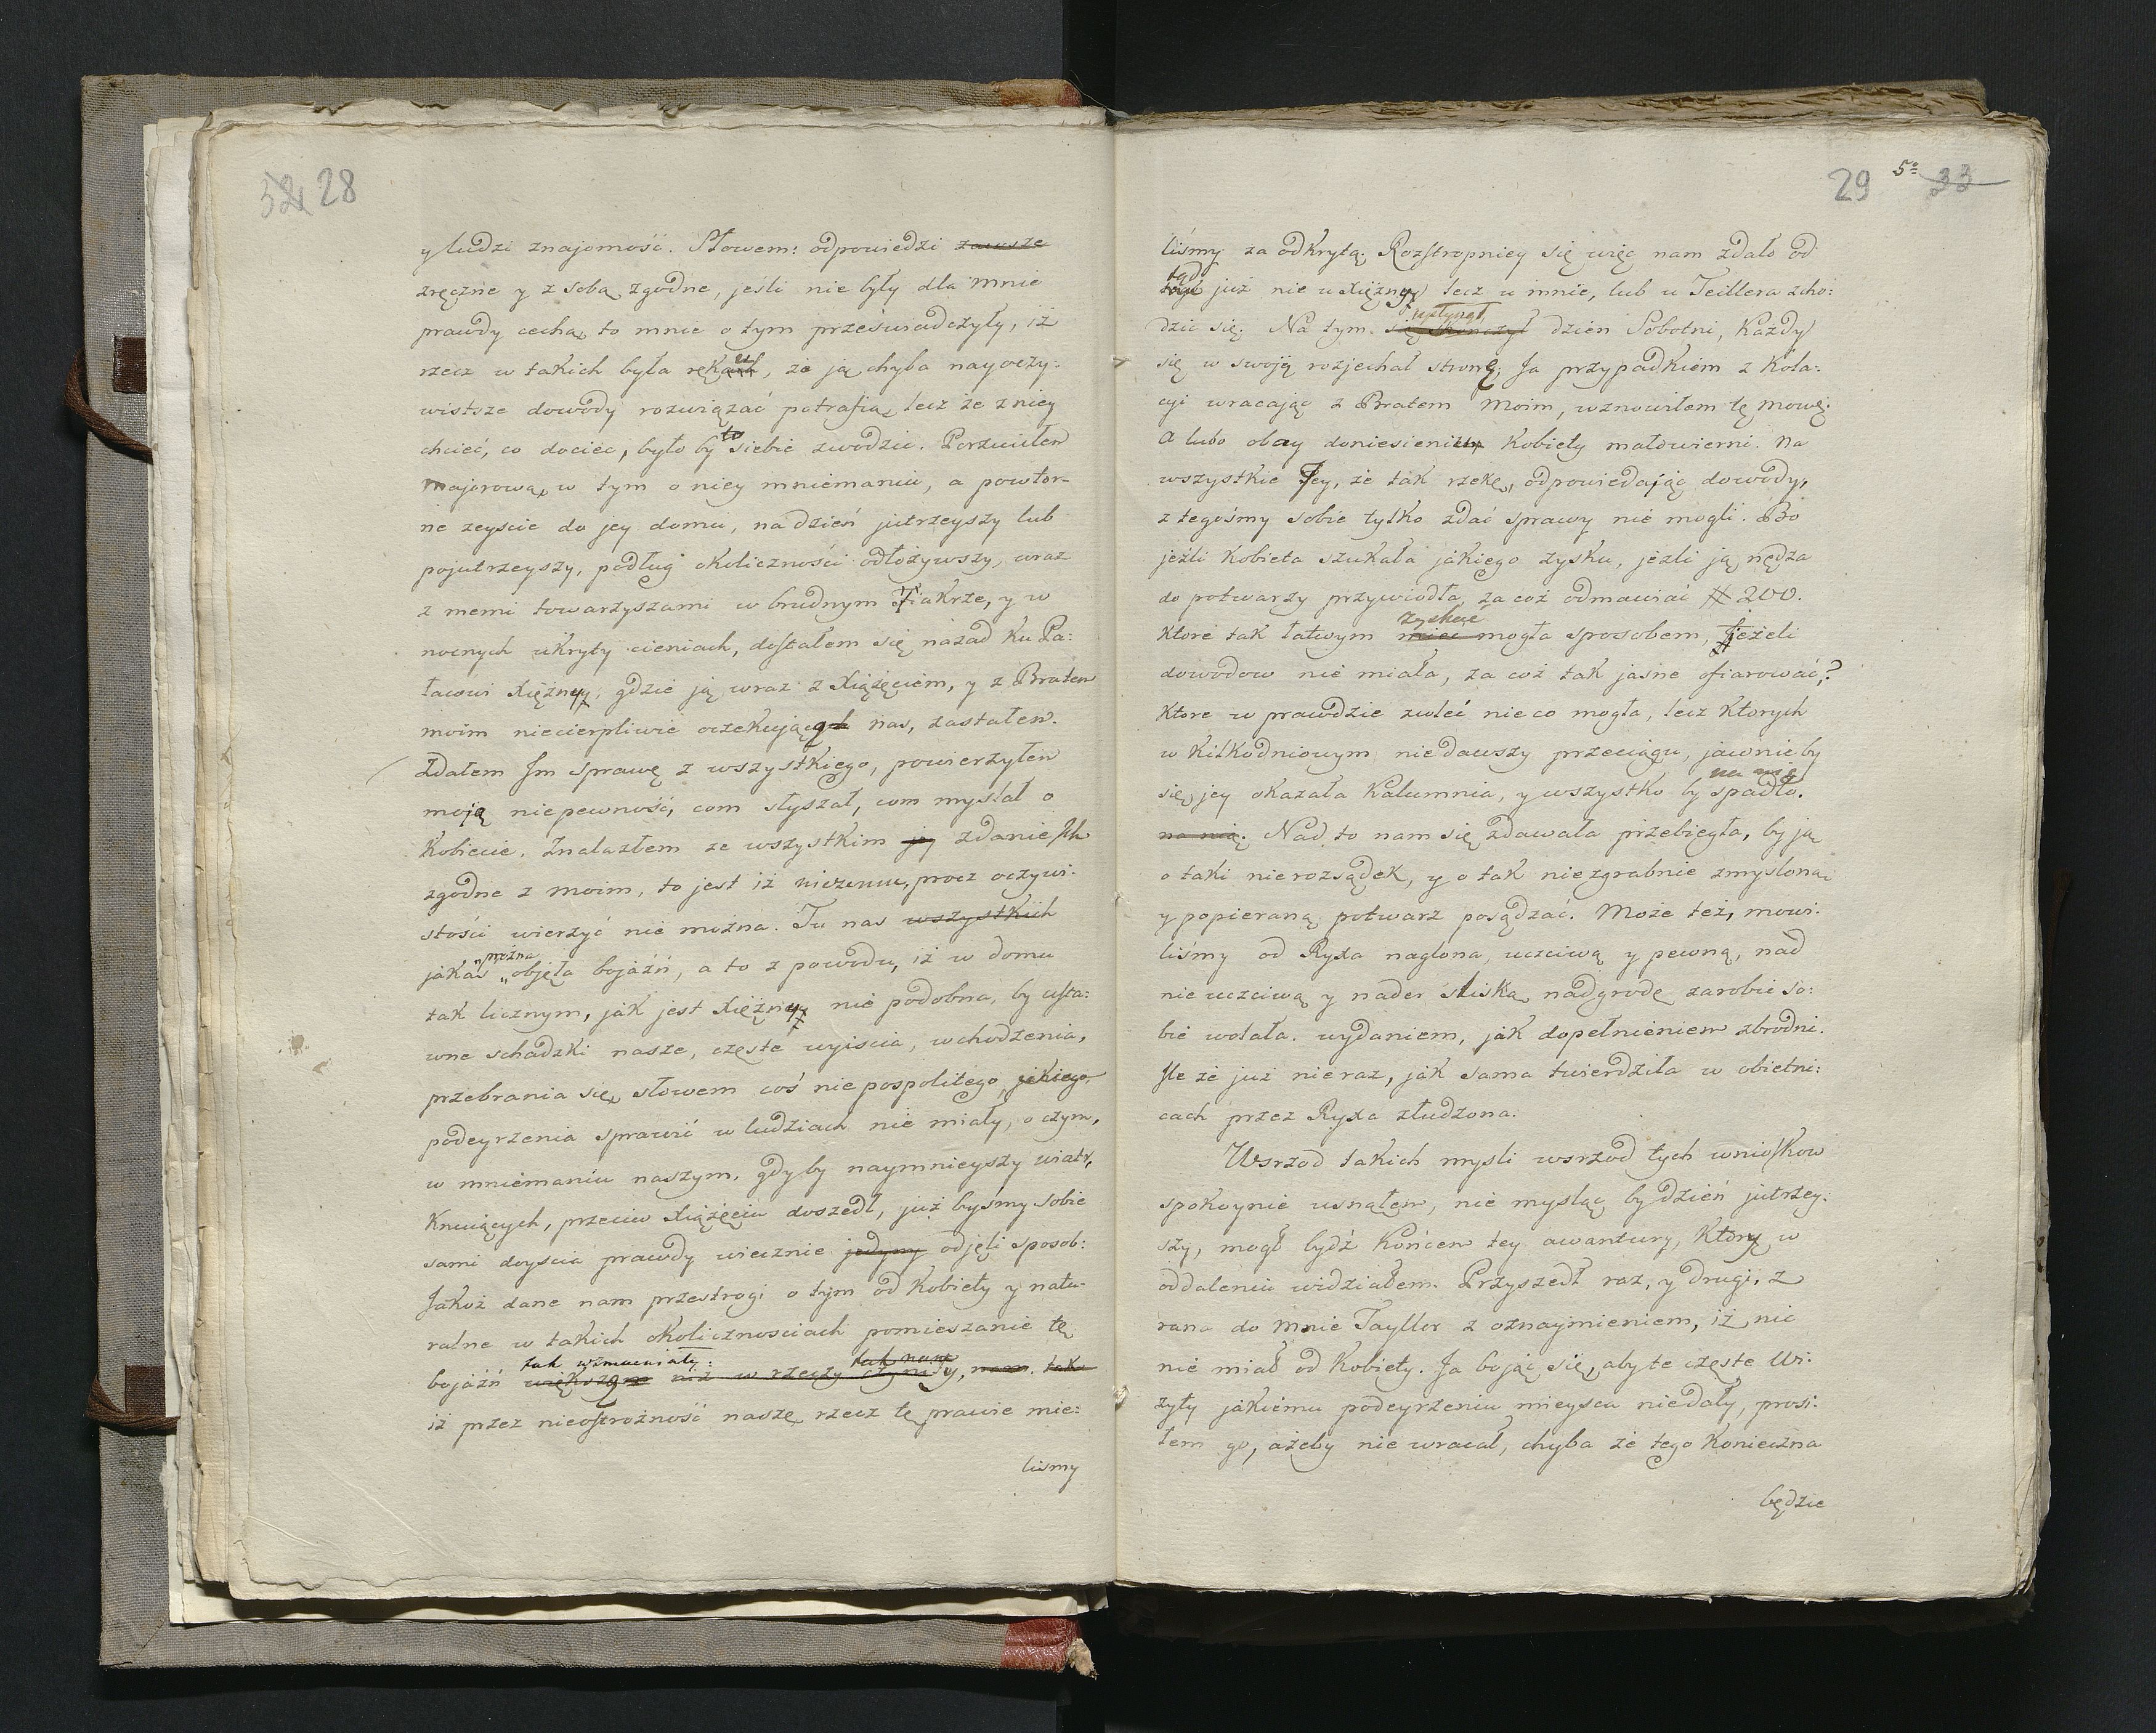 32 28
y ludzi znajomość. Słowem: odpowiedzi zawsze
zręczne y z sobą zgodne, jeśli nie były dla mnie
prawdy cechą, to mnie o tym przeświadczyły, iż
rzecz w takich była ręku, że ją chyba nayoczy:
wistsze dowody rozwiązać potrafią, lecz że z niey
chcieć, co dociec, było by to siebie zwodzic. Porzuciłem
Majorową, w tym o niey mniemaniu, a powtor-
ne zeyscie do jey domu, na dzień jutrzeyszy lub
pojutrzeyszy, podług okoliczności odłożywszy, wraz
z memi towarzyszami w brudnym Fiakrze, y w
nocnych ukryty cieniach, dostałem się nazad ku Pa:
łacowi Xiężny, gdzie ją wraz z Xiążęciem, y z Bratem
moim niecierpliwie oczekując nas, zastałem.
Zdałem Im sprawę z wszystkiego, powierzyłem
moją niepewność, com słyszał, com myslał o
Kobiecie. Znalazłem ze wszystkim jey zdanie Ich
zgodne z moim, to jest iż niczemu, procz oczywi-
stości wierzyć nie można. Tu nas wszystkich
jakaś próżna objęła bojaźń, a to z powodu, iż w domu
tak licznym, jak jest Xiężny nie podobna, by usta:
wne schadzki nasze, częste wyiscia, wchodzenia,
przebrania się, słowem coś niepospolitego, jakiego
podeyrzenia sprawić w ludziach nie miały, o czym,
w mniemaniu naszym, gdyby naymnieyszy wiatr,
Knuiących, przeciw Xiążęciu doszedł, już byśmy sobie
sami doyscia prawdy wiecznie jedyny odjęli sposob:
Jakoż dane nam przestrogi o tym od Kobiety y natu-
ralne w takich okolicznosciach pomieszanie tę
bojaźń tak wzmacniały: większą niż w rzeczy tak nam, nam. tak
iż przez nieostrożność naszę rzecz tę prawie mie:
liśmy
29 5º 33
liśmy za odkrytą. Rozstropniey się więc nam zdało od
tąd już nie u Xiężny lecz u mnie, lub u Teillera scho:
dzić się. Na tym upłynął się skończył dzien Sobotni, Każdy
się w swoję rozjechał stronę. Ja przypadkiem z Kola:
cyi wracając z Bratem Moim, wznowiłem tę mowę.
A lubo obay doniesieniu Kobiety małowierni. Na
wszystkie Jey, że tak rzekę, odpowiedając dowody,
z tegośmy sobie tylko zdać sprawy nie mogli. Bo
jeźli Kobieta szukała jakiego zysku, jezli ją nędza
do potwarzy przywiodła, za coż odmawiać # 200.
Ktore tak łatwym zyskać miec mogła sposobem, jeżeli
dowodow nie miała, za coż tak jasne ofiarować?
Ktore w prawdzie zwlec nie co mogła, lecz Ktorych
w Kilkodniowym niedawszy przeciągu, jawnieby
się jey okazała Kalumnia, y wszystko by na nię spadło.
na nię. Nad to nam się zdawała przebiegła, by ją
o taki nierozsądek, y o tak niezgrabnie zmysloną
y popieraną potwarz posądzać. Może też, mowi:
liśmy od Ryxa naglona, uczciwą y pewną, nad
nieuczciwą y nader sliską nadgrodę zarobic so:
bie wolała. wydaniem, jak dopełnieniem zbrodni.
Ile że już nie raz, jak sama twierdziła w obietni:
cach przez Ryxa złudzona.
Wsrzod takich mysli wsrzod tych wnioskow
spokoynie usnąłem, nie mysląc, by dzień jutrzey:
szy, mogł bydź Końcem tey awantury, Ktory w
oddaleniu widziałem. Przyszedł raz, y drugi, z
rana do mnie Tayller z oznaymieniem, iż nic
nie miał od Kobiety. Ja bojąc się, aby te częste Wi:
zyty jakiemu podeyrzeniu mieysca niedały, prosi:
łem go, ażeby nie wracał, chyba że tego Konieczna
będzie